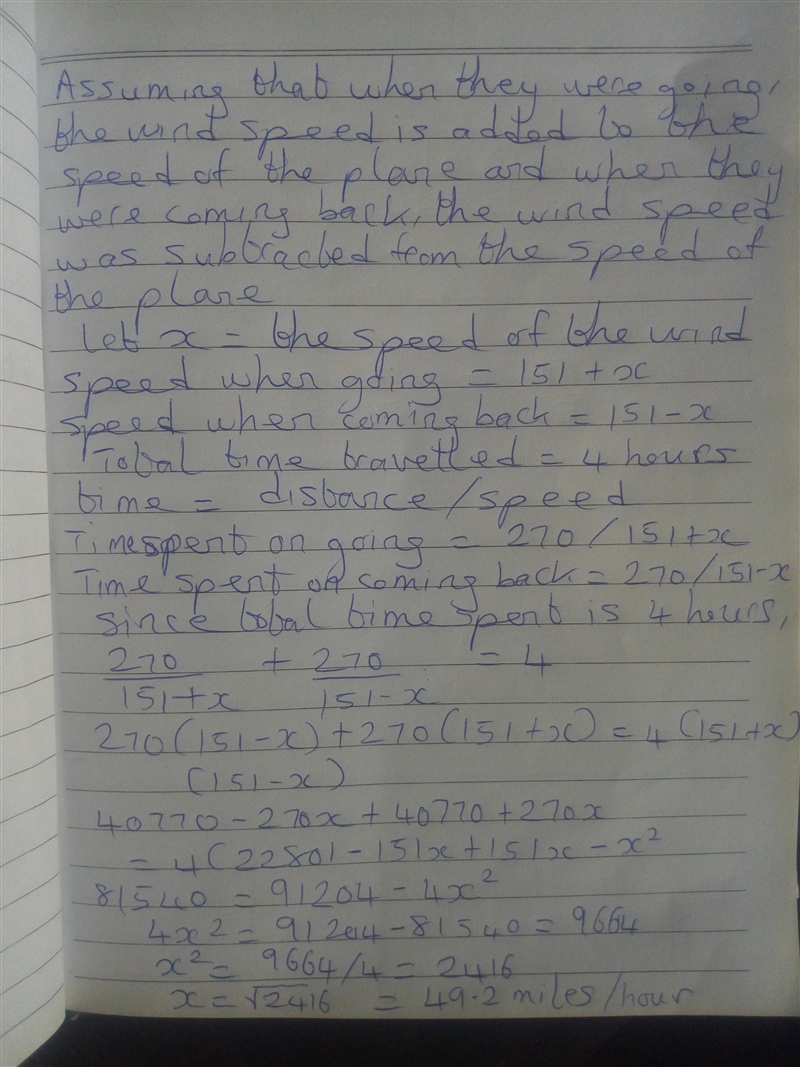 Assuming that when they were going,
the wind speed is added to the
speed of the plane and when they
were coming back, the wind speed
was subtracted from the speed of
the plane
Let x = the speed of the wind
speed when going = 151 + x
speed when coming back = 151 - x
Total time travelled = 4 hours
time = distance/speed
Time spent on going = 270 / 151+x
Time spent on coming back = 270/151-x
since total time spent is 4 hours,
270/151+x + 270/151-x = 4
270(151-x) + 270(151+x) = 4(151+x)
(151-x)
40770 - 270x + 40770 + 270x
= 4(22801 - 151x + 151x - x²
81540 = 91204 - 4x²
4x² = 91204 - 81540 = 9664
x² = 9664/4 = 2416
x = √2416 = 49.2 miles/hour